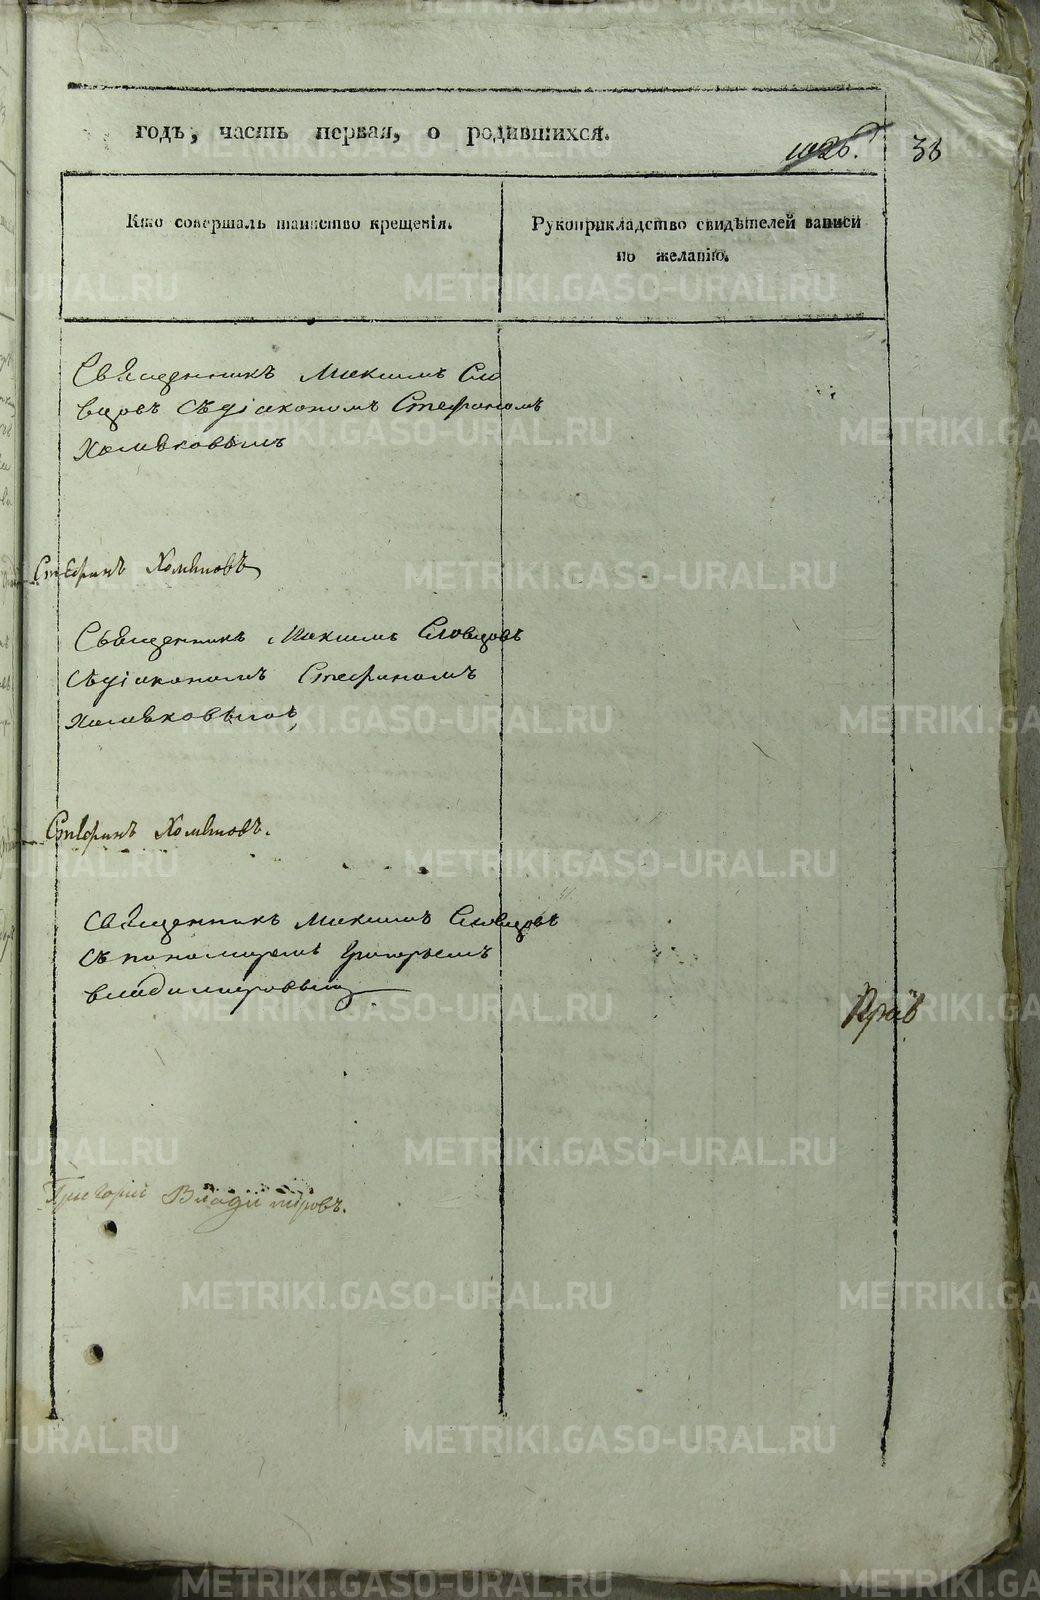 годъ, часть первая, о родившихся.
1026. 38
Кто совершалъ таинство крещенія.
Рукоприкладство свидѣтелей записи
по желанію.
Священникъ Максимъ Сло
вцовъ съдіакономъ Стефаномъ
Хомяковымъ
Стефанъ Хомяковъ
Священникъ Максимъ Словцовъ
съдіакономъ Стефаномъ
Хомяковымъ
Стефанъ Хомяковъ.
Священникъ Максимъ Словцовъ
съ пономаремъ Григорьемъ
владимировымъ
Григорий Владимировъ.
METRIKI.GASO-URAL.RU